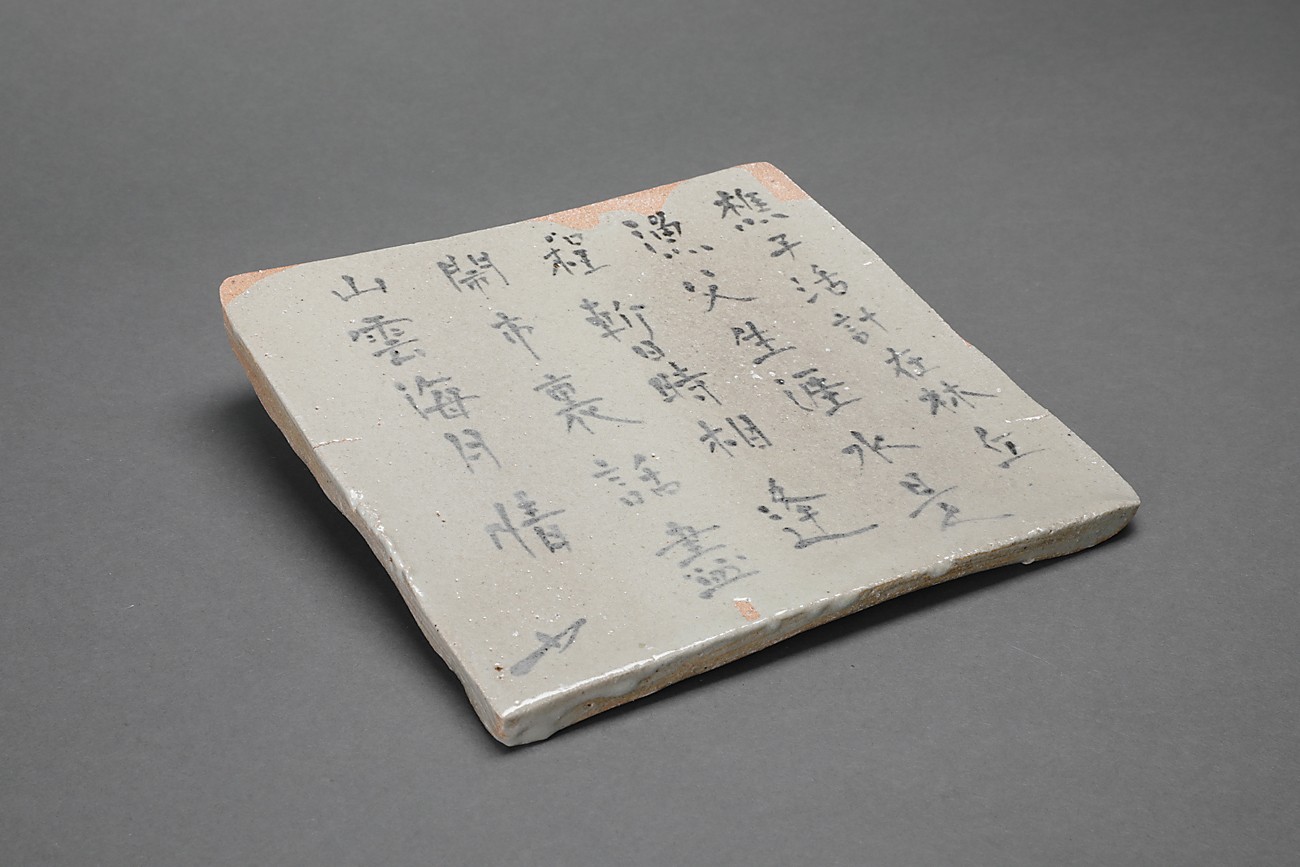 樵子活計在林丘
漁父生涯水是
程暫時相逢
鬧市裏話盡
山雲海月情